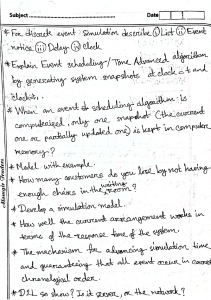 Subject
Date
* For discrete event simulation describe (i) List (ii) Event
notice (iii) Delay (iv) Clock
* Explain Event scheduling/Time Advanced algorithm
by generating system snapshots at clock = t and
clock = t₁
* When an event scheduling algorithm is
computerized, only one snapshot (the current
one or partially updated one) is kept in computer
memory?
* Model with example.
* How many customers do you lose by not having
enough chairs in the waiting room?
* Develop a simulation model.
* How well the current arrangement works in
terms of the response time of the system.
* The mechanism for advancing simulation time
and guaranteeing that all event occur in correct
chronological order.
* DSL so slow? Is it server, or the network?